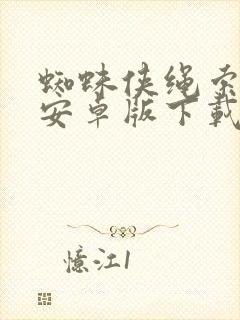 蜘蛛侠绳索
安卓版下载
憶江1